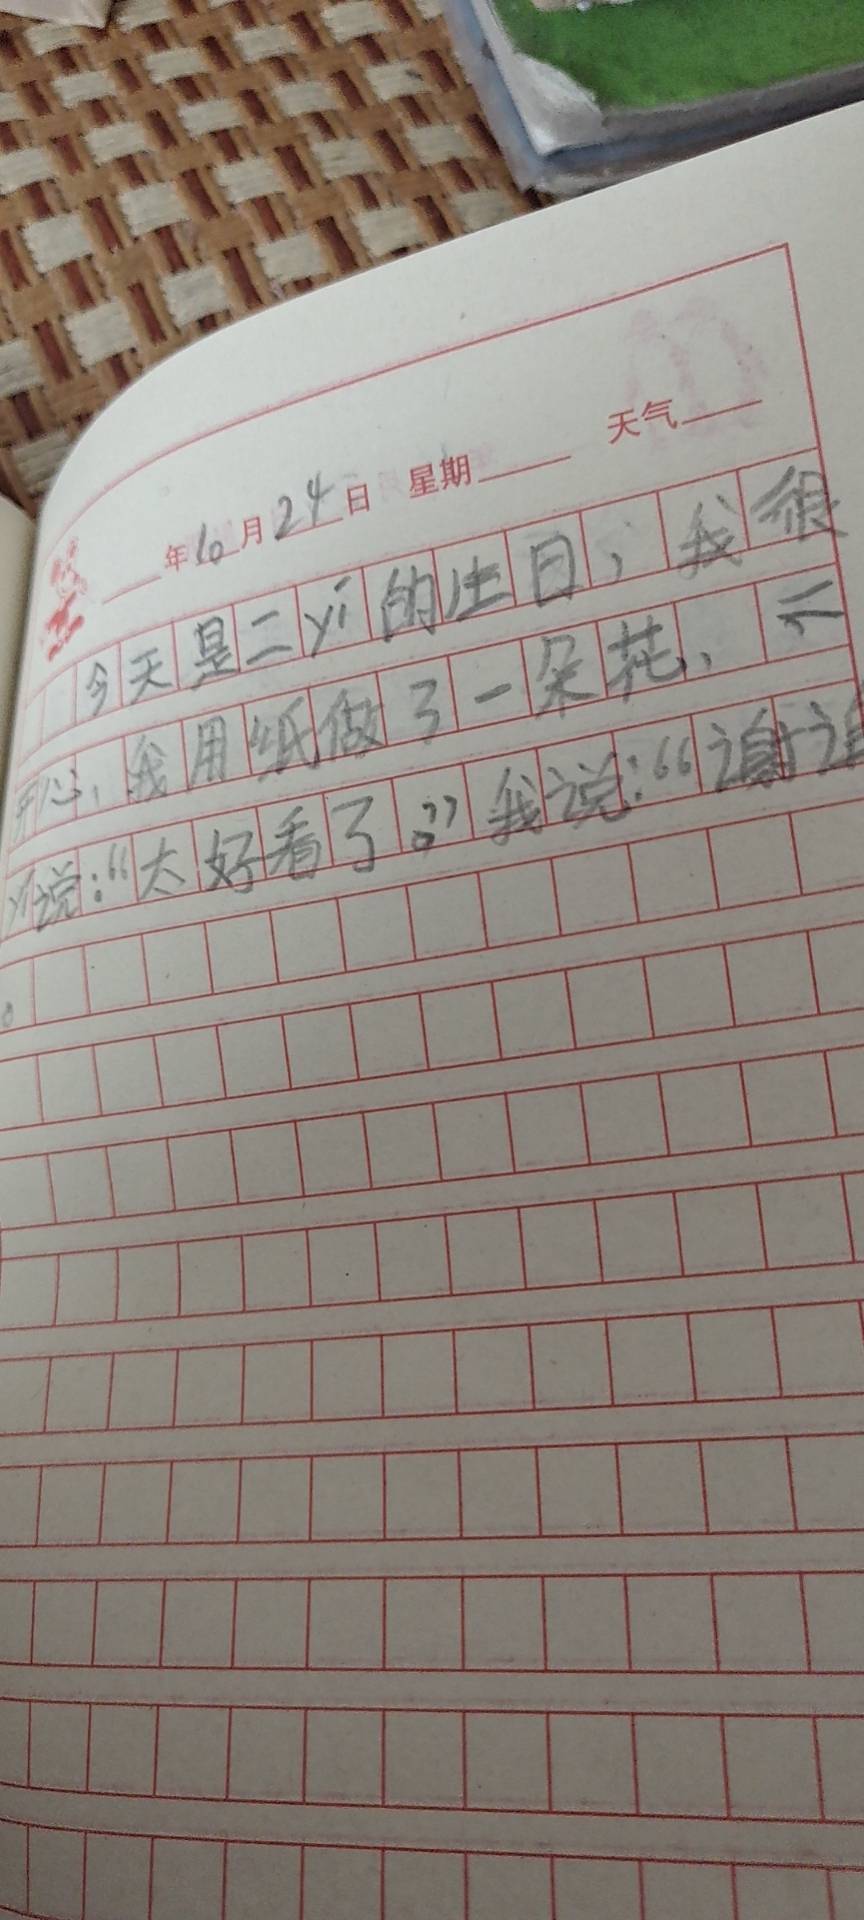 年10月24日 星期 天气
今天是二yí的生日，我很
开心，我用纸做了一朵花、二
yí说：“太好看了。”我说：“谢谢
。